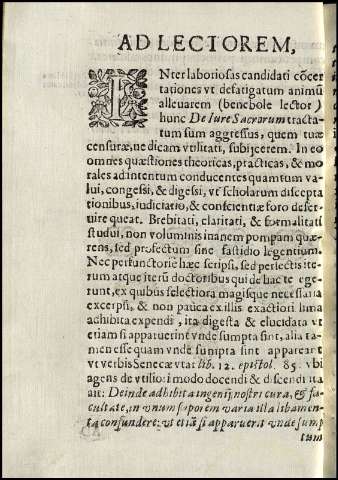 AD LECTOREM,
INter laboriosas candidati cõcer
tationes vt defatigatum animũ
alleuarem (benebole lector)
hunc De Iure Sacrorum tracta-
tum sum aggressus, quem tuæ
censuræ, ne dicam vtilitati, subijcerem. In eo
omnes quæstiones theoricas, practicas, & mo
rales ad intentum conducentes quamtum va-
lui, congessi, & digessi, vt scholarum discepta
tionibus, iudiciario, & conscientiæ foro deser
uire queat. Brebitati, claritati, & formalitati
studui, non voluminis inanem pompam quæ-
rens, sed profectum sine fastidio legentium.
Nec perfunctoriè hæc scripsi, sed perlectis ite-
rum atque iterũ doctoribus qui de hac te ege-
runt, ex quibus selectiora magisque necessaria
excerpsi, & non pauca ex illis exactiori lima
adhibita expendi, ita digesta & elucidata vt
etiam si apparuerint vnde sumpta sint, alia ta-
men esse quam vnde sumpta sint appareant
vt verbis Senecæ vtar lib. 12. epistol. 85. vbi
agens de vtiliori modo docendi & discendi ita
ait: Deinde adhibita ingenij nostri cura, & fa-
cultate, in vnum saporem varia illa libamen-
ta confundere: vt etiã si apparuerit vnde sump
tum